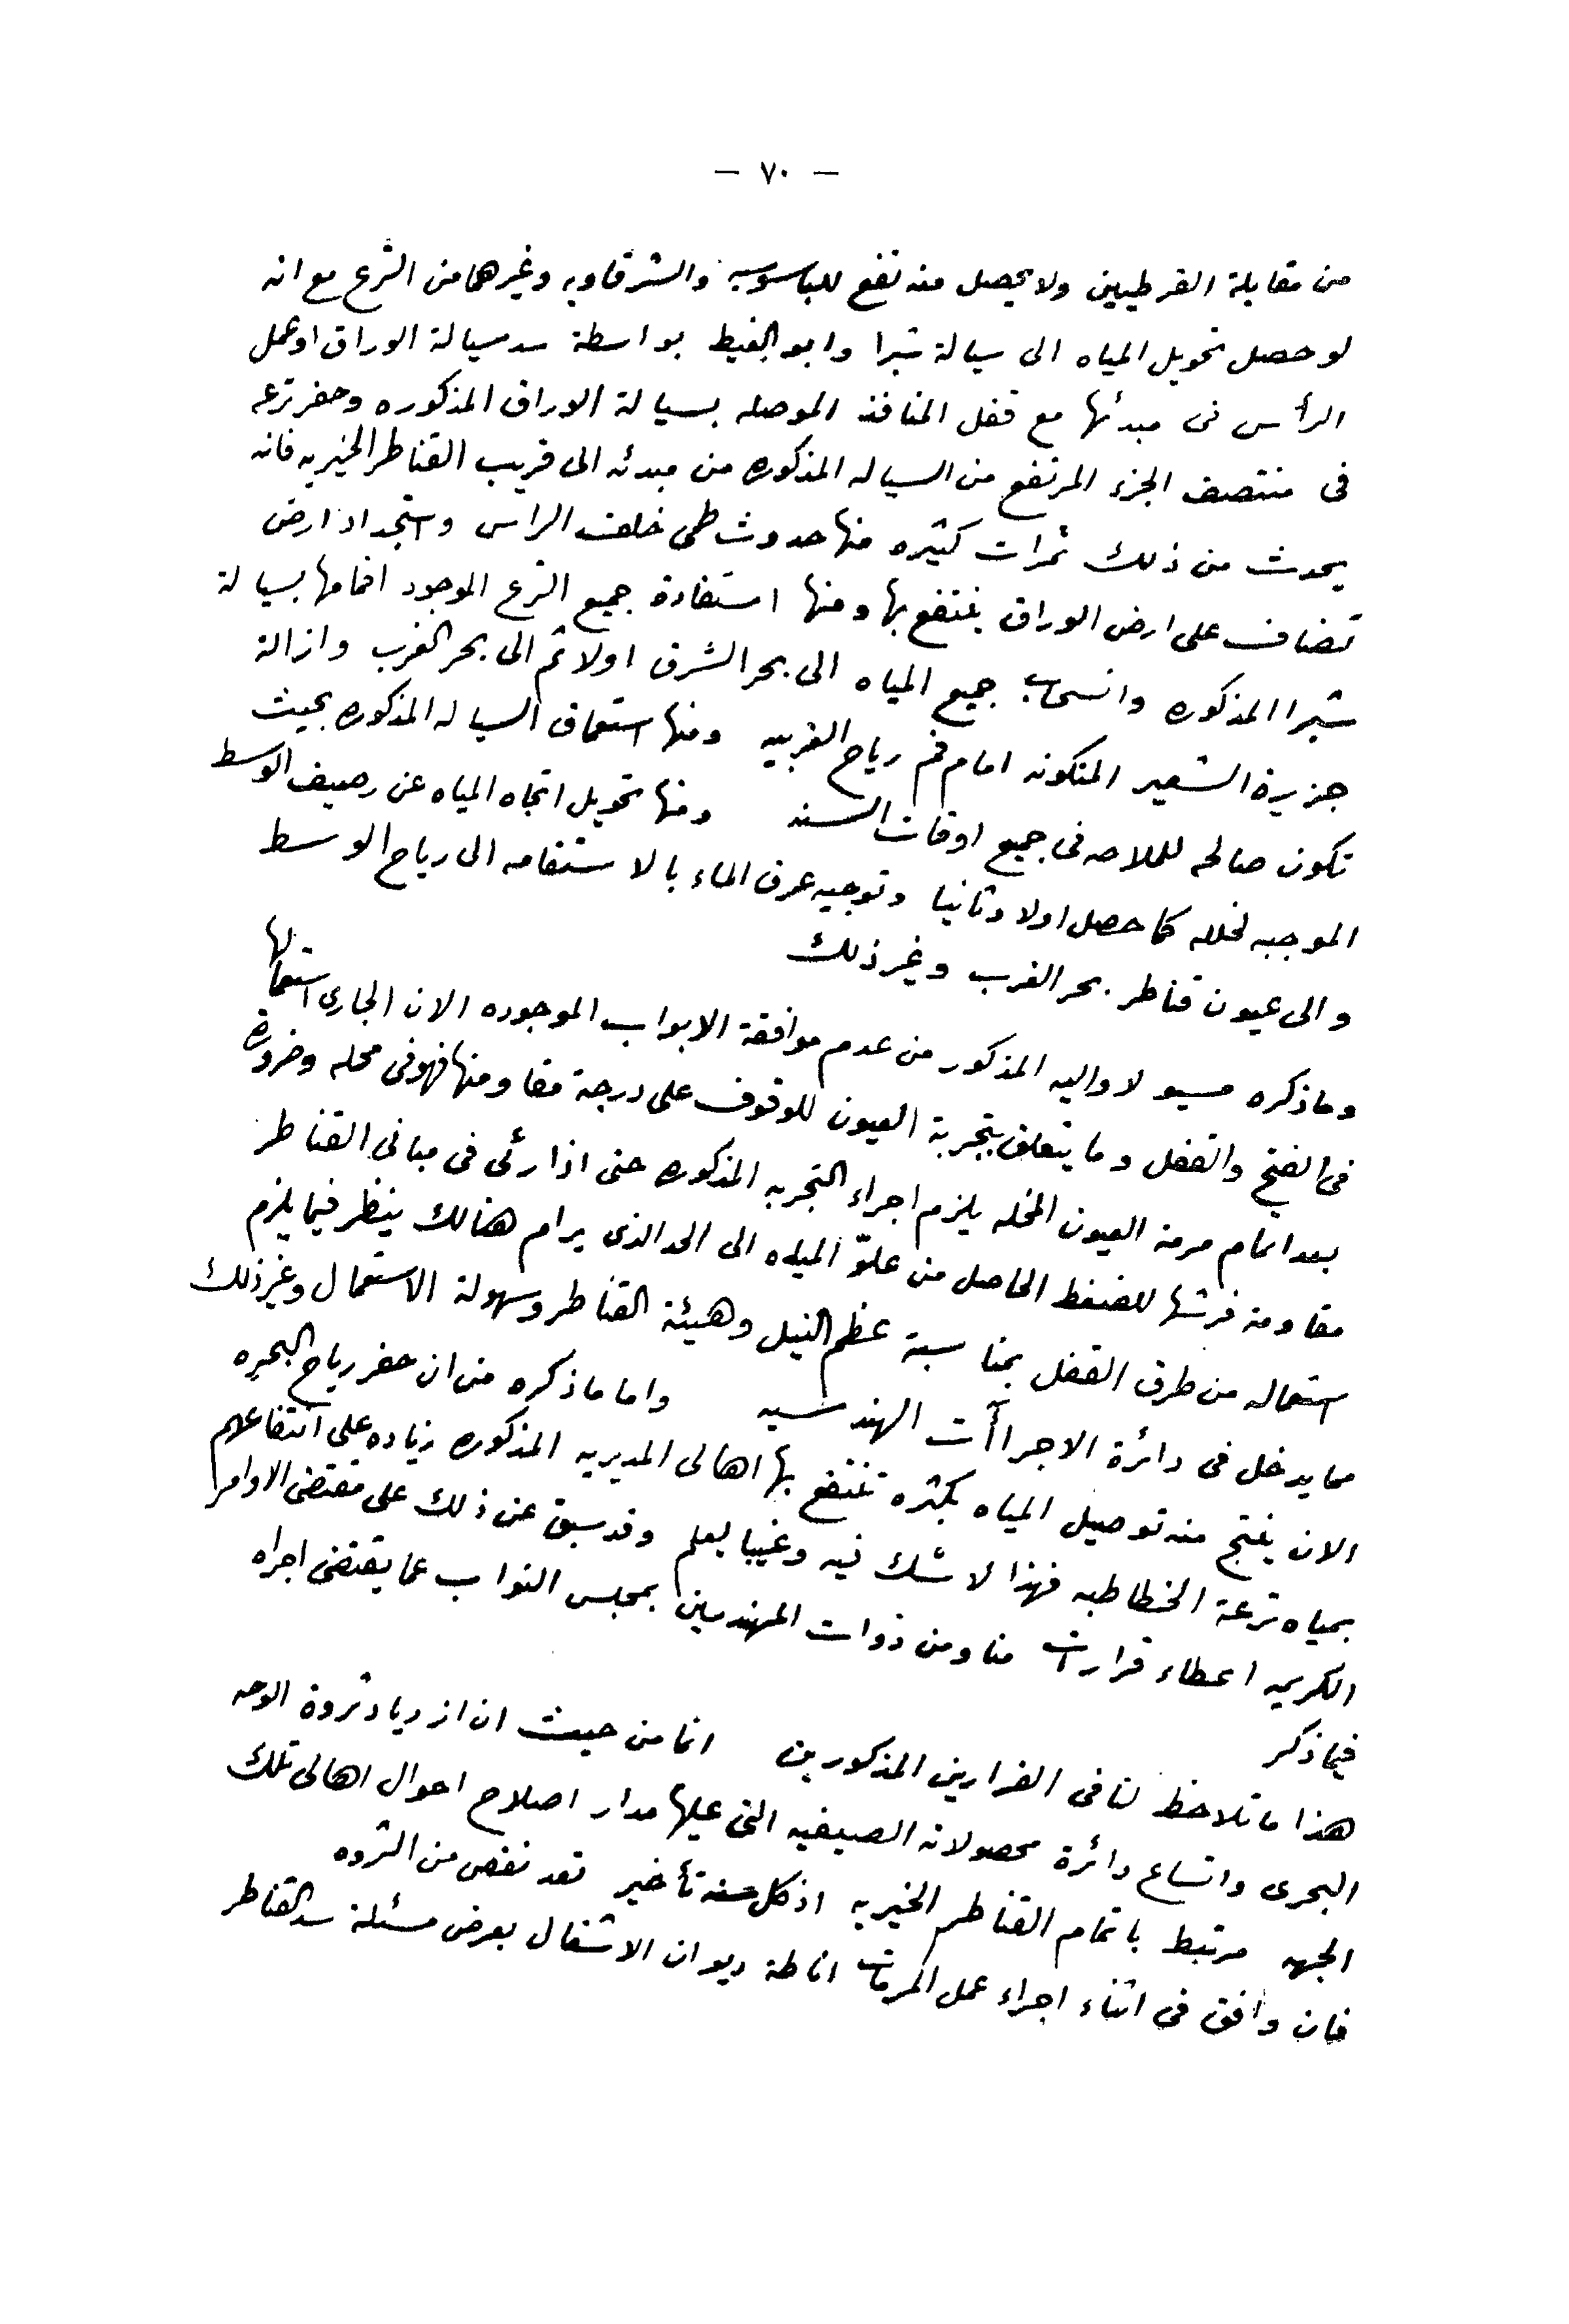 — ٧٠ —
من مقابلة القرطيين ولا يحصل منه نفع للباسوسيه والشرقاويه وغيرهما من الترع مع انه
لو حصل تحويل المياه الى سيالة شبرا وابو الغيط بواسطة سد سيالة الوراق او عمل
الرأس فى مبدئها مع قفل المنافذ الموصله بسيالة الوراق المذكوره وحفر ترعه
فى منتصف الجزء المرتفع من السياله المذكوره من مبدئه الى قريب القناطر الخيريه فانه
يحدث من ذلك ثمرات كثيره منها حدوث طمى خلف الراس واستجداد ارض
تضاف على ارض الوراق ينتفع بها ومنها استفادة جميع الترع الموجود افمامها بسيالة
شبرا المذكوره وانسحاب جميع المياه الى بحر الشرق اولا ثم الى بحر الغرب وازالة
جزيرة الشعير المتكونه امام فم رياح الغربيه ومنها استعماق السياله المذكوره بحيث
تكون صالحه للملاحه فى جميع اوقات السنه ومنها تحويل اتجاه المياه عن رصيف الوسط
الموجبه لخلله كما حصل اولا وثانيا وتوجيه عرق الماء بالاستقامه الى رياح الوسط
والى عيون قناطر بحر الغرب وغير ذلك
وما ذكره مسيو لاواليه المذكور من عدم موافقة الابواب الموجوده الان الجارى استعمالها
فى الفتح والقفل وما يتعلق بتجربة العيون للوقوف على درجة مقاومتها فهو فى محله وضرورة
بعد اتمام مرمة العيون المخله يلزم اجراء التجربه المذكوره حتى اذا رئى فى مبانى القناطر
مقاومة فرشها للضغط الحاصل من علوّ المياه الى الحد الذى يرام هنالك ينظر فيما يلزم
استعماله من طرق القفل بمناسبة عظم النيل وهيئة القناطر وسهولة الاستعمال وغير ذلك
مما يدخل فى دائرة الاجراآت الهندسيه واما ما ذكره من ان حفر رياح البحيره
الان ينتج منه توصيل المياه بكثره تنتفع بها اهالى المديريه المذكوره زياده على انتفاعهم
بمياه ترعة الخطاطبه فهذا لا شك فيه وغيبا يعلم وقد سبق عن ذلك على مقتضى الاوامر
الكريمه اعطاء قرارات منا ومن ذوات المهندسين بمجلس النواب عما يقتضى اجراه
فيما ذكر
هذا ما تلاحظ لنا فى القرارين المذكورين انما من حيث ان ازدياد ثروة الوجه
البحرى واتساع دائرة محصولاته الصيفيه التى عليها مدار اصلاح احوال اهالى تلك
الجهه مرتبط باتمام القناطر الخيريه اذ كل سنة تأخير تعد نقص من الثروه
فان وافق فى اثناء اجراء عمل المرمات اناطة ديوان الاشغال بعرض مسئلة سد القناطر